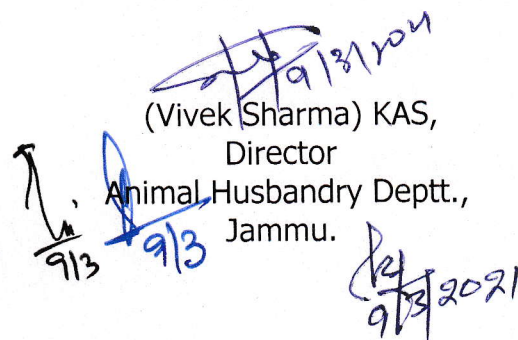 9/3/2021
(Vivek Sharma) KAS,
Director
Animal Husbandry Deptt.,
Jammu.
9/3
9/3
9/3/2021